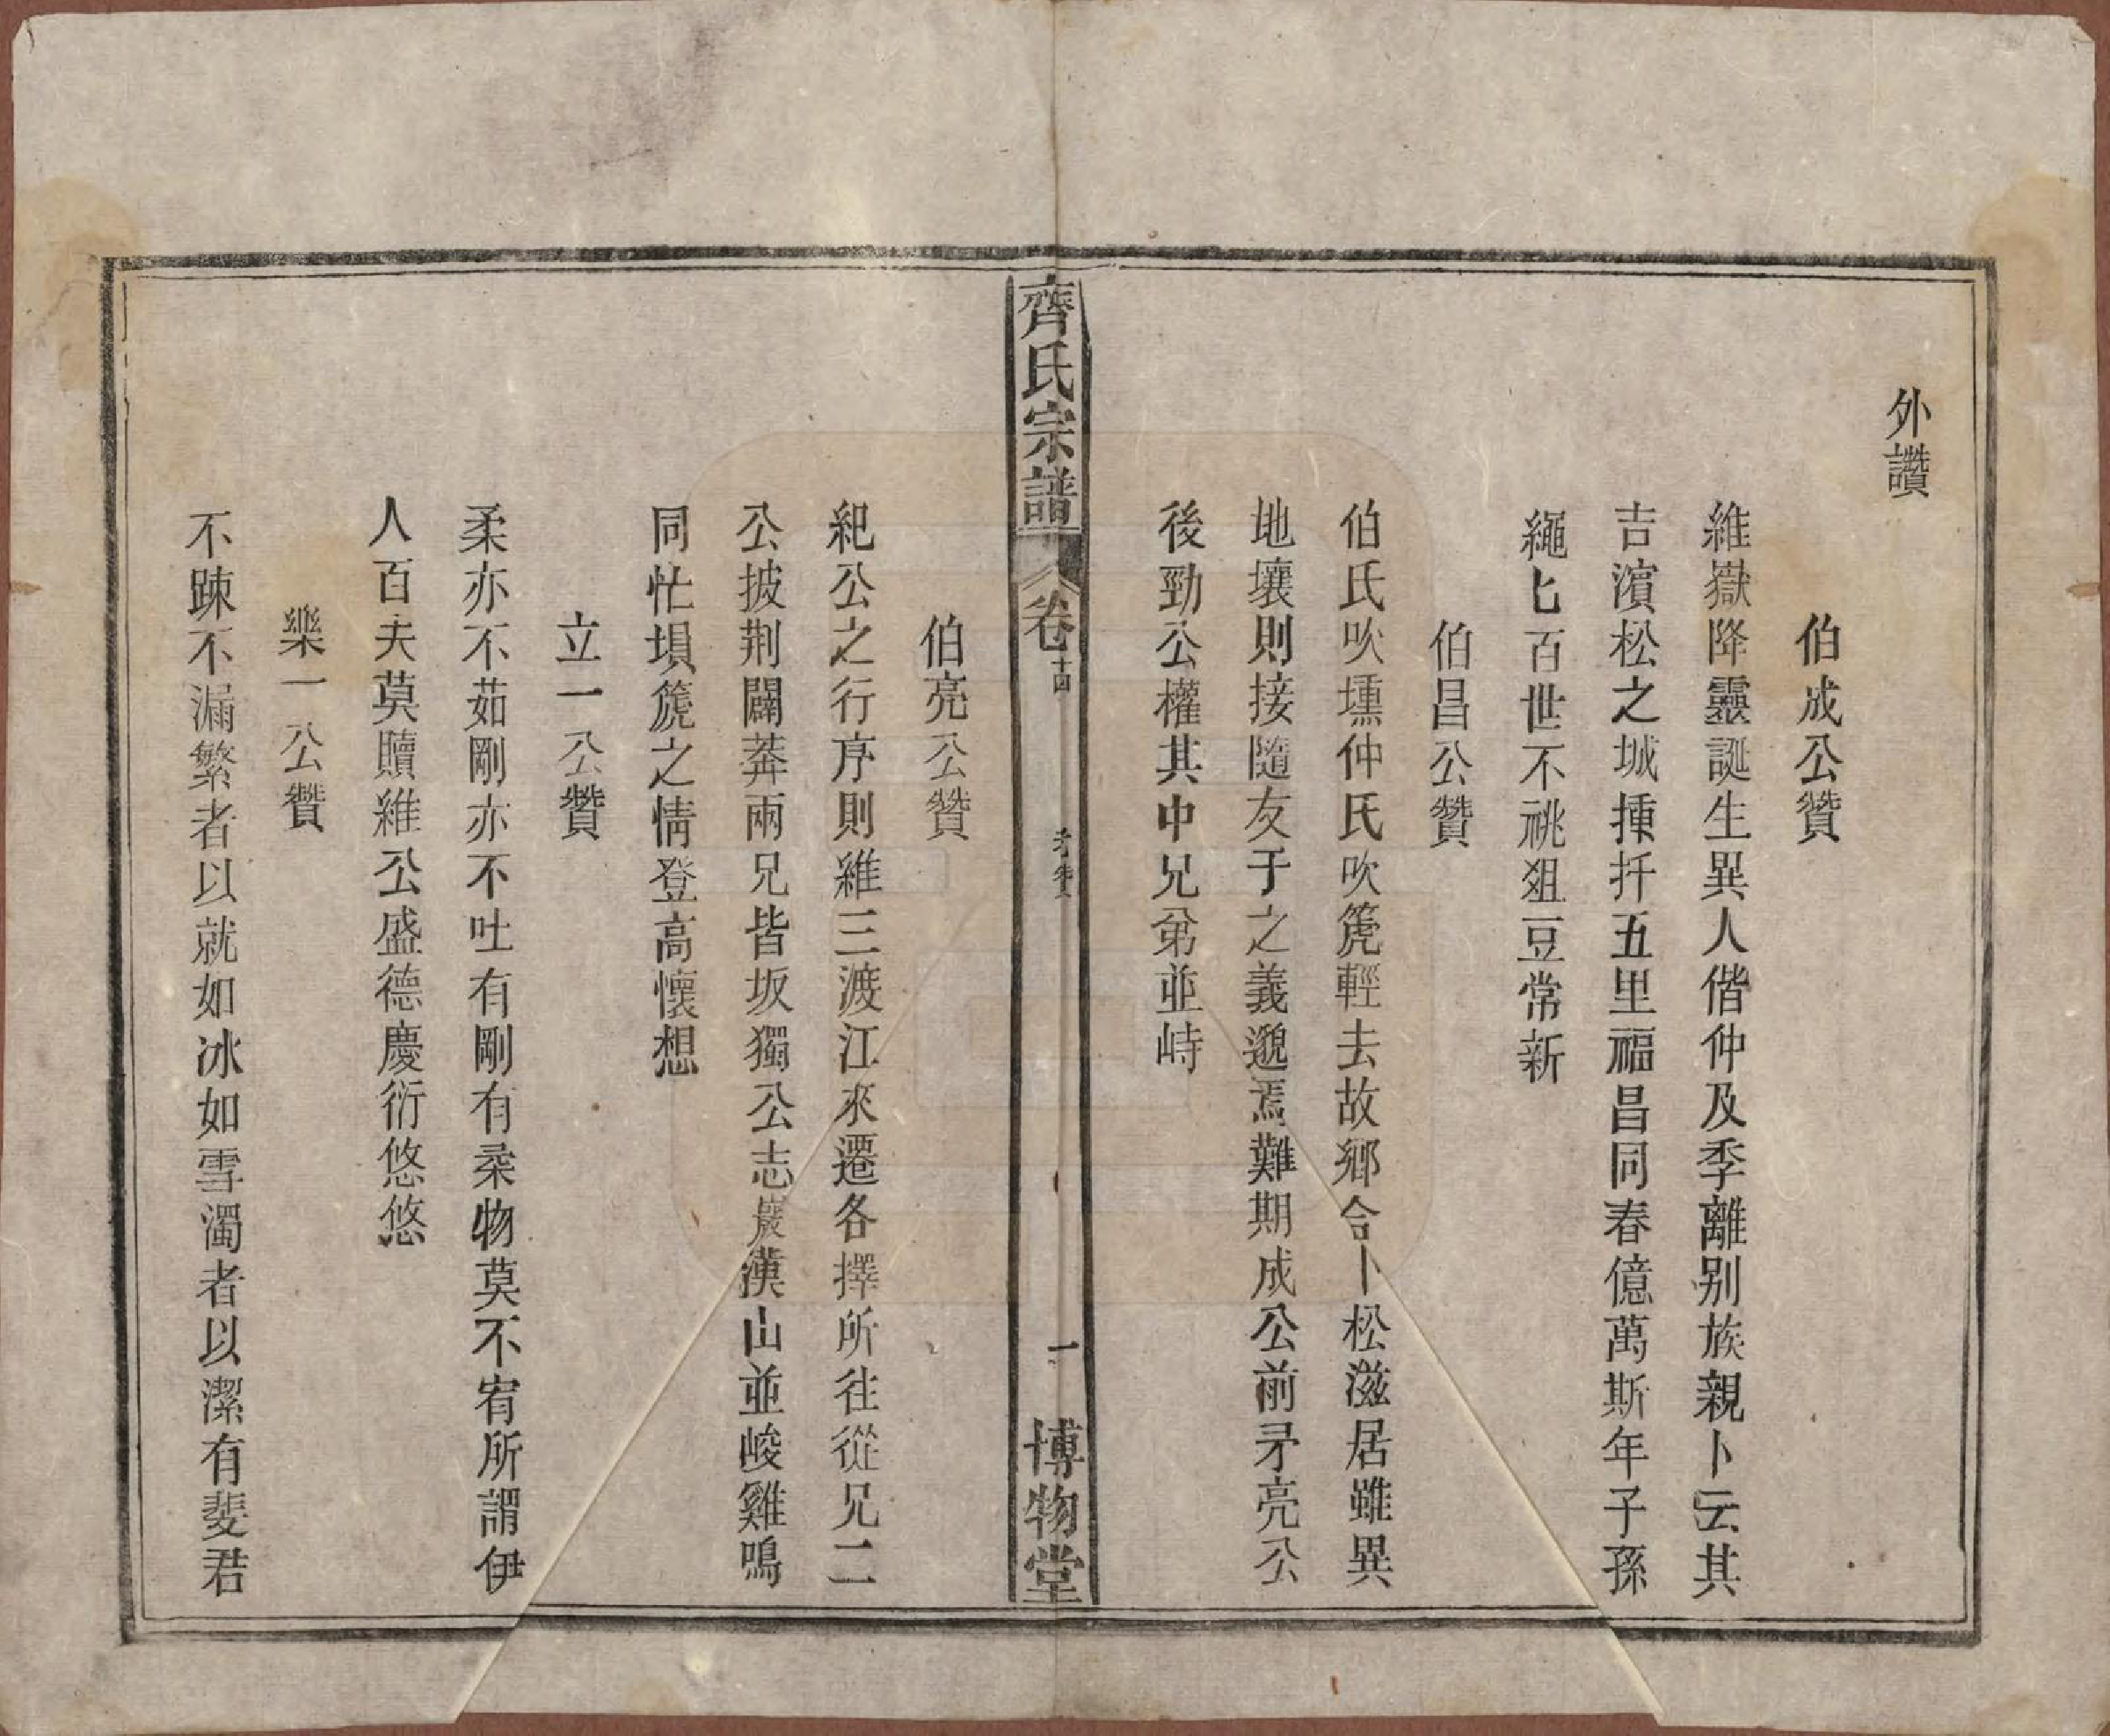 外讚
伯成公贊
維嶽降靈誕生異人偕仲及季離别族親卜云其
吉濱松之城㨂扦五里福昌同春億萬斯年子孫
繩匕百世不祧俎豆常新
伯昌公贊
伯氏吹壎仲氏吹篪輕去故鄉合卜松滋居雖異
地壤則接隨友于之義邈焉難期成公前矛亮公
後勁公權其中兄弟並峙
齊氏宗譜
卷十四
一
博物堂
伯亮公贊
紀公之行序則維三渡江來遷各擇所往從兄二
公披荆闢莽兩兄皆坂獨公志巖漢山並峻雞鳴
同忙塤篪之情登高懷想
立一公贊
柔亦不茹剛亦不吐有剛有柔物莫不宥所謂伊
人百夫莫贖維公盛德慶衍悠悠
樂一公贊
不踈不漏繁者以就如冰如雪濁者以潔有斐君